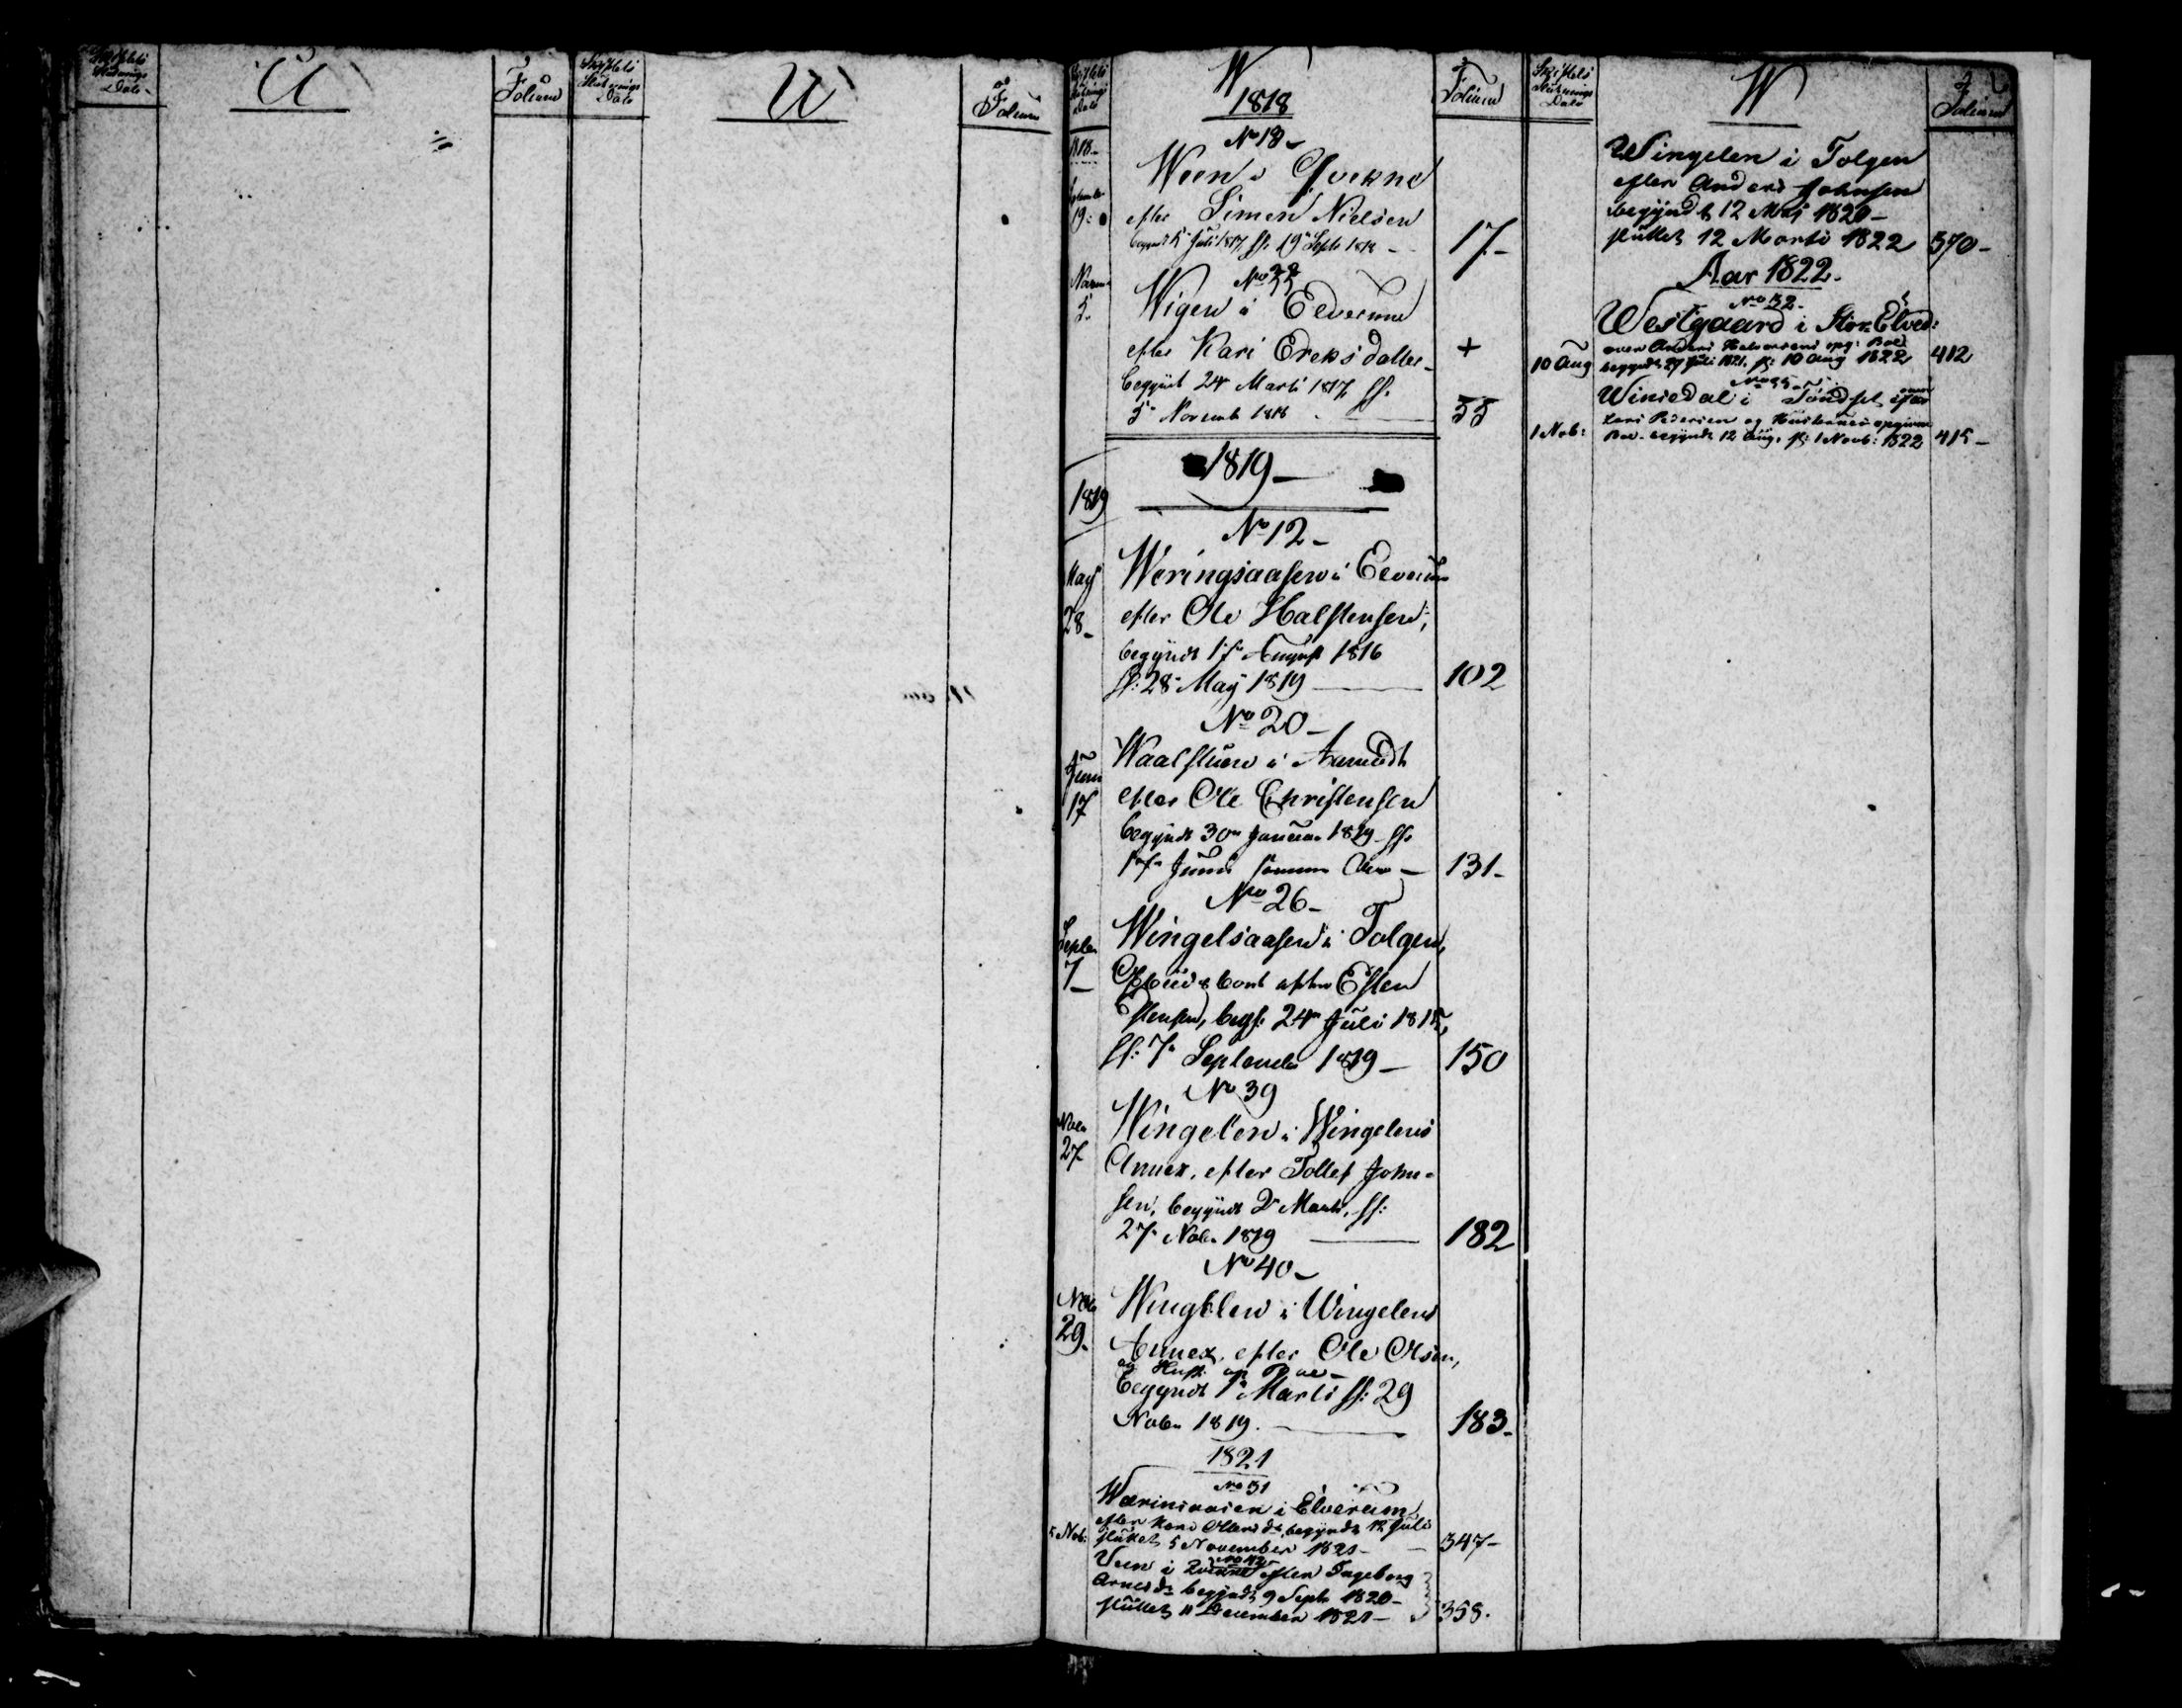 Skiftets Slutnings Dato
U
Folium
Skiftets Slutnings Dato
U
Folium
Skiftets Slutnings Dato
W
1818
Folium
1818-
No 13-
Woen i Qvekne
September
19:
efter Simen Nielsen
begyndt 5 Juli 1817, sl: 19 Septr 1818 -
17-
No 33
Novem
5.
Wigen i Elverum
efter Kari Ereksdatter
+
begynt 24 Marti 1817, sl:
5 Novemb 1818
55
1819-
1819
No 12-
May
28-
Weringsaasen i Elverum
efter Ole Halstensen,
begyndt 17 August 1816
sl: 28 May 1819
102
No 20-
Juni
17
Waalstuen i Aamodt
efter Ole Christensen
begyndt 30 Januar 1819 sl:
17 Juni samme Aar -
131-
No 26-
Septbr
7-
Wingelsaasen i Tolgen,
efter Esten
Estensen, begt 24 Juli 1815,
sl: 7 September 1819-
150
No 39
Nobr
27
Wingelen i Wingelens
Annex, efter Tollef John-
sen, begyndt 2 Marti, sl:
27 Nobr 1819
182
No 40-
Nobr
29.
Wingelen i Wingelens
Annex, efter Ole Olsen,
og Hust:
begyndt 1 Marti sl: 29
Nobr 1819.
183-
1821
No 31
Wærinsaasen i Elverum
efter Kari Olesdr, begyndt 12 Juli
5 Nob:
sluttet 5 November 1821-
347-
No 42
Veen i Qvikne efter Ingeborg
Arnesdr begyndt 9 Septr 1820-
sluttet 11 December 1821-
358.
Skiftets Slutnings Dato
W
Folium
Wingelen i Tolgen
efter Anders Johnsen
begyndt 12 Maj 1820-
sluttet 12 Marti 1822
370-
Aar 1822.
No 32.
Westgaard i Stor-Elved:
over Anders Halvorsens opg: Boe
10 Aug
begyndt 27 Juli 1821. sl: 10 Aug 1822
412
Winsedal i Tøndset over
Lars Pedersen og Hustrues opgivne
1 Nob:
Boe- begyndt 12 Aug. sl: 1 Novb: 1822
415-